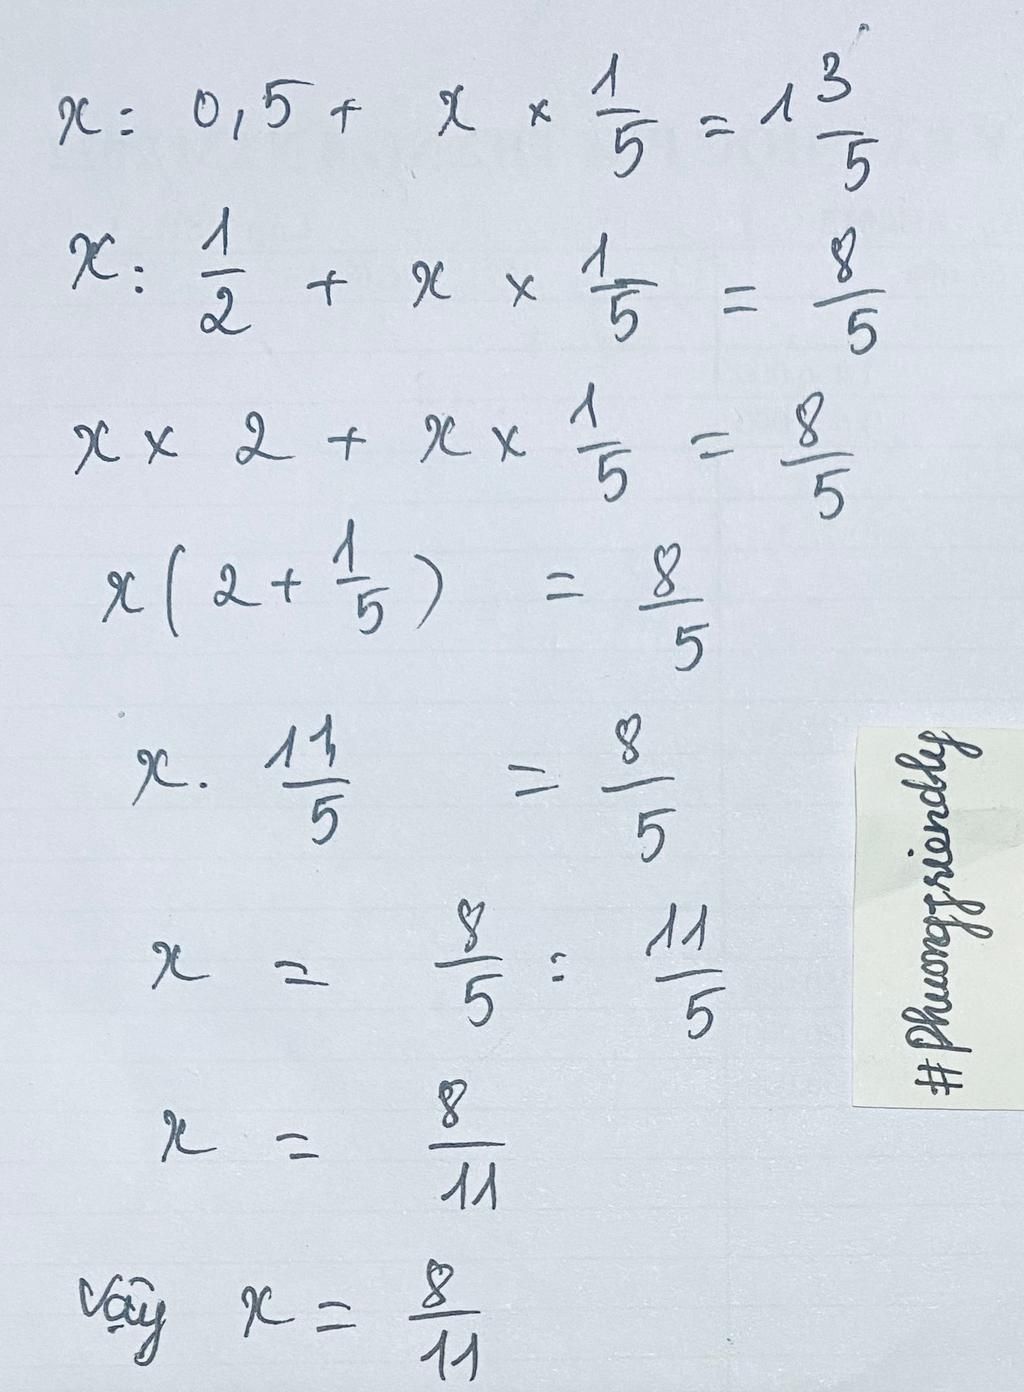 x : 0,5 + x × 1/5 = 1 3/5
x : 1/2 + x × 1/5 = 8/5
x × 2 + x × 1/5 = 8/5
x ( 2 + 1/5 ) = 8/5
x . 11/5 = 8/5
x = 8/5 : 11/5
x = 8/11
Vậy x = 8/11
#phuongfriendly